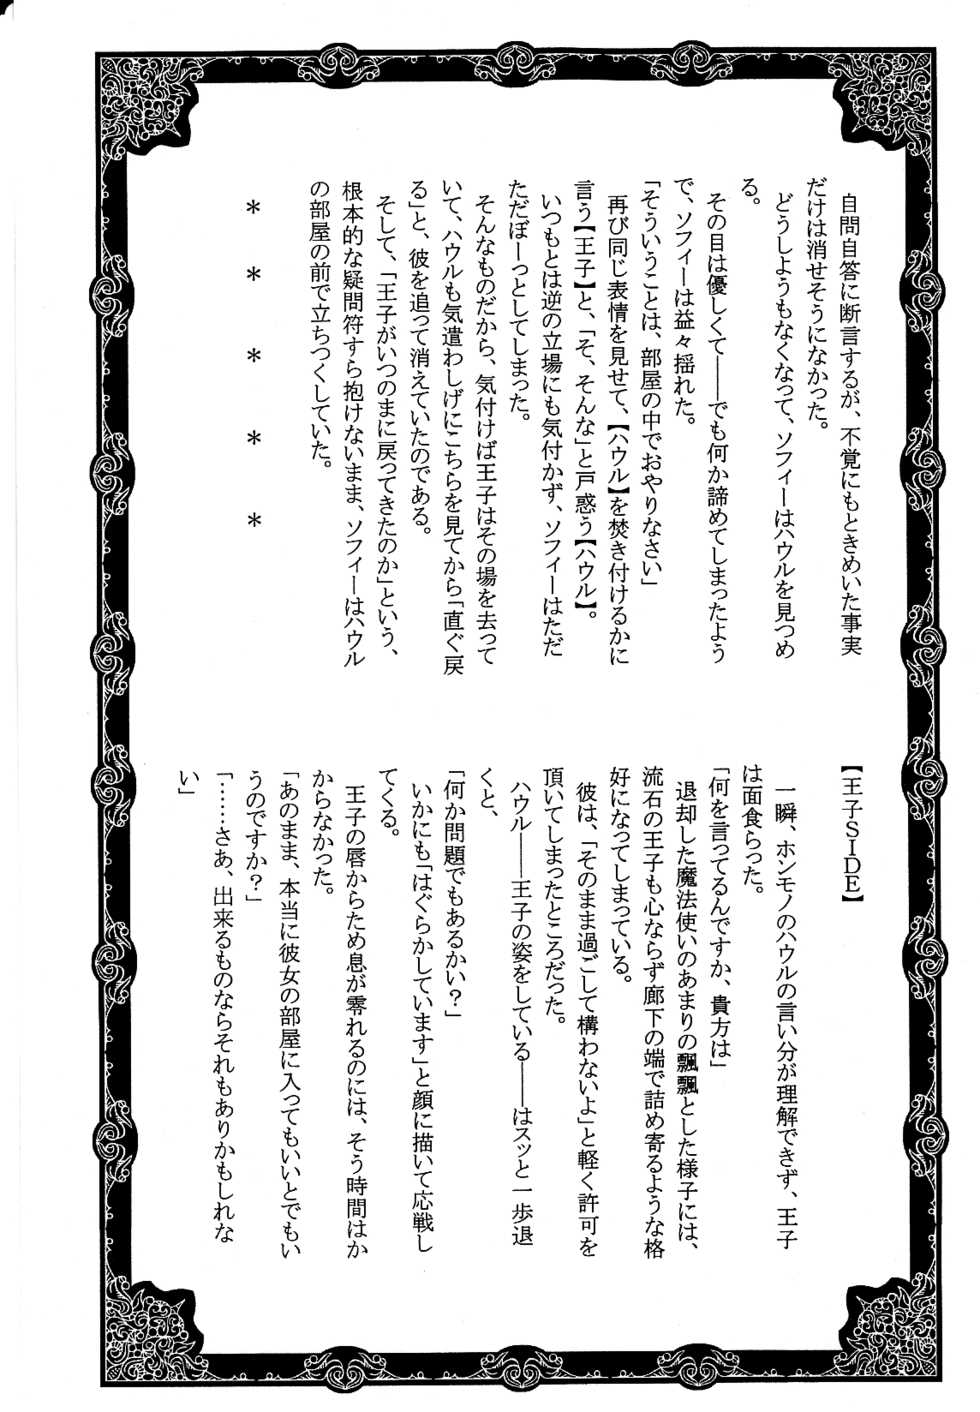 自問自答に断言するが、不覚にもときめいた事実
だけは消せそうになかった。
どうしようもなくなって、ソフィーはハウルを見つめ
る。
その目は優しくて――でも何か諦めてしまったよう
で、ソフィーは益々揺れた。
「そういうことは、部屋の中でおやりなさい」
再び同じ表情を見せて、【ハウル】を焚き付けるかに
言う【王子】と、「そ、そんな」と戸惑う【ハウル】。
いつもとは逆の立場にも気付かず、ソフィーはただ
ただぼーっとしてしまった。
そんなものだから、気付けば王子はその場を去って
いて、ハウルも気遣わしげにこちらを見てから「直ぐ戻
る」と、彼を追って消えていたのである。
そして、「王子がいつのまに戻ってきたのか」という、
根本的な疑問符すら抱けないまま、ソフィーはハウル
の部屋の前で立ちつくしていた。
＊　＊　＊　＊　＊
【王子SIDE】
一瞬、ホンモノのハウルの言い分が理解できず、王子
は面食らった。
「何を言ってるんですか、貴方は」
退却した魔法使いのあまりの飄飄とした様子には、
流石の王子も心ならず廊下の端で詰め寄るような格
好になってしまっている。
彼は、「そのまま過ごして構わないよ」と軽く許可を
頂いてしまったところだった。
ハウル――王子の姿をしている――はスッと一歩退
くと、
「何か問題でもあるかい？」
いかにも「はぐらかしています」と顔に描いて応戦し
てくる。
王子の唇からため息が零れるのには、そう時間はか
からなかった。
「あのまま、本当に彼女の部屋に入ってもいいとでもい
うのですか？」
「……さあ、出来るものならそれもありかもしれな
い」